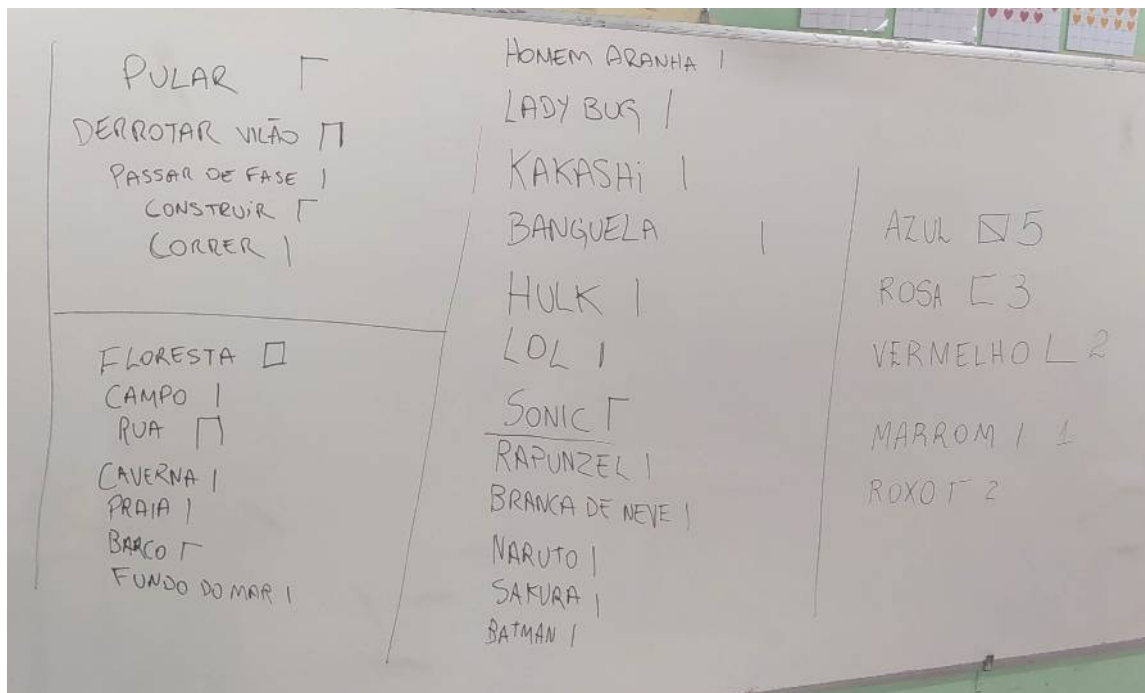 PULAR
DERROTAR VILÃO
PASSAR DE FASE |
CONSTRUIR
CORRER |
FLORESTA
CAMPO |
RUA
CAVERNA |
PRAIA |
BARCO
FUNDO DO MAR |
HOMEM ARANHA |
LADY BUG |
KAKASHi |
BANGUELA |
HULK |
LOL |
SONIC
RAPUNZEL |
BRANCA DE NEVE |
NARUTO |
SAKURA |
BATMAN |
AZUL 5
ROSA 3
VERMELHO 2
MARROM | 1
ROXO 2